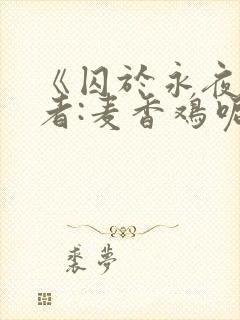 《囚於永夜
者:麦香鸡呢
裘夢